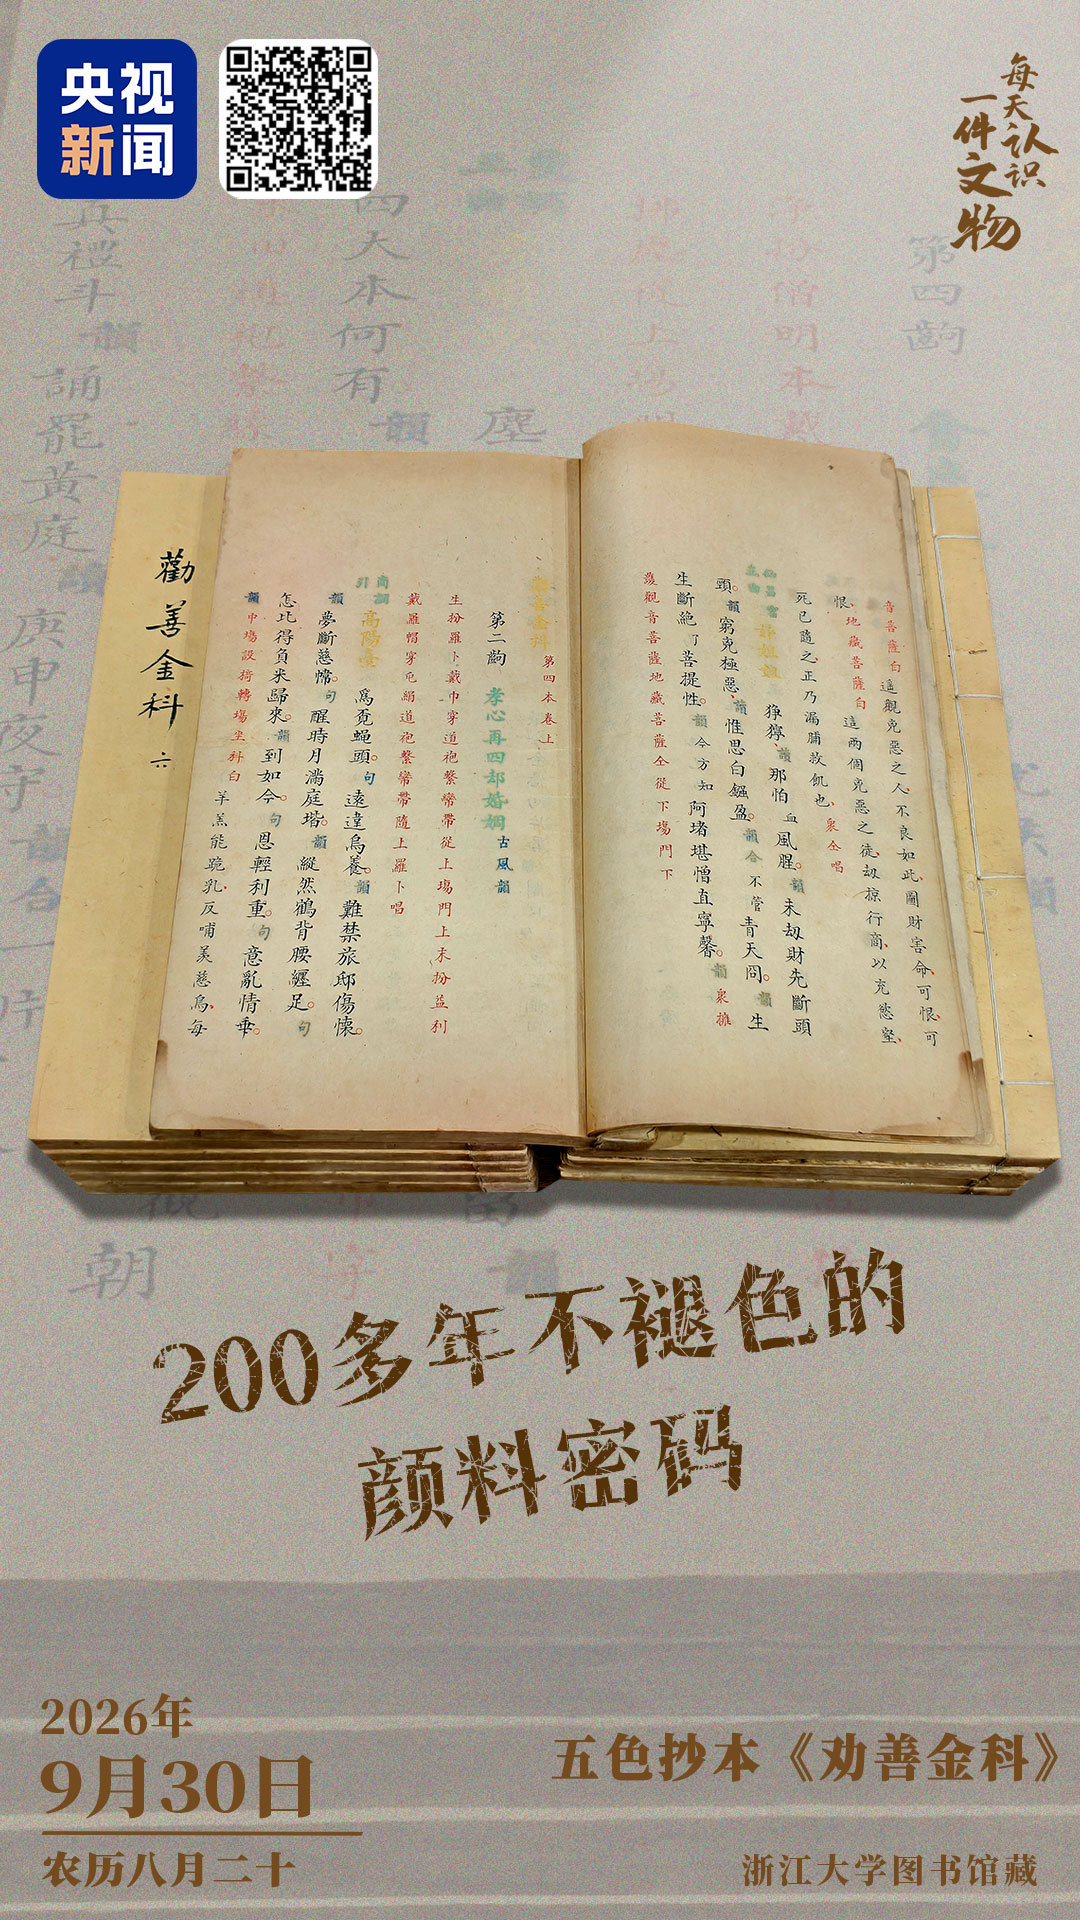 央视
新闻
每天认识
一件文物
真禮斗 韻
誦罷黃庭
庚申夜守
四大本何有
韻
塵
第四齣
朝
勸善金科 六
音菩薩白 遥觀兇惡之人、不良如此、圖財害命、可恨、可
恨、地藏菩薩白 這兩個兇惡之徒、刼掠行商、以充慾壑、
死已隨之、正乃漏脯救飢也、衆仝唱
猙獰、韻 那怕血風腥。韻 未刼財先斷頭
頸。韻 窮兇極惡、韻 惟思白鏹盈。韻 合 不管青天冏。韻 生
生斷絶了菩提性。韻 今方知阿堵堪憎直寧馨。韻 衆擁
護觀音菩薩地藏菩薩仝從下塲門下
勸善金科
第四本卷上
第二齣 孝心再四却婚姻 古風韻
生扮羅卜戴巾穿道袍繫縧帶從上塲門上末扮益利
戴羅帽穿屯絹道袍繫縧帶隨上羅卜唱
商調
引
高陽臺 爲覔蝇頭。句 遠違烏養。韻 難禁旅邸傷懷。
韻 夢斷慈幃。句 醒時月滿庭堦。韻 縱然鶴背腰纏足。句
怎比得負米歸來。韻 到如今。句 恩輕利重。句 意亂情乖。
韻 中塲設椅轉塲坐科白 羊羔能跪乳、反哺羙慈烏、每
200多年不褪色的
颜料密码
2026年
9月30日
农历八月二十
五色抄本《劝善金科》
浙江大学图书馆藏